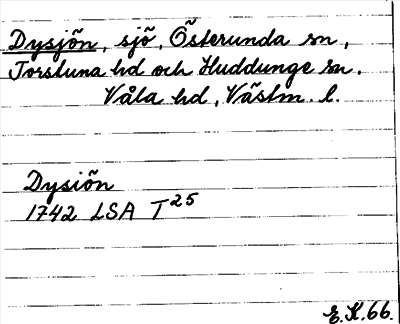 Dysjön, sjö, Österunda sn,
Torstuna hd och Huddunge sn.
Våla hd, Västm. l.
Dysiön
1742 LSA T 25
E.K.66.